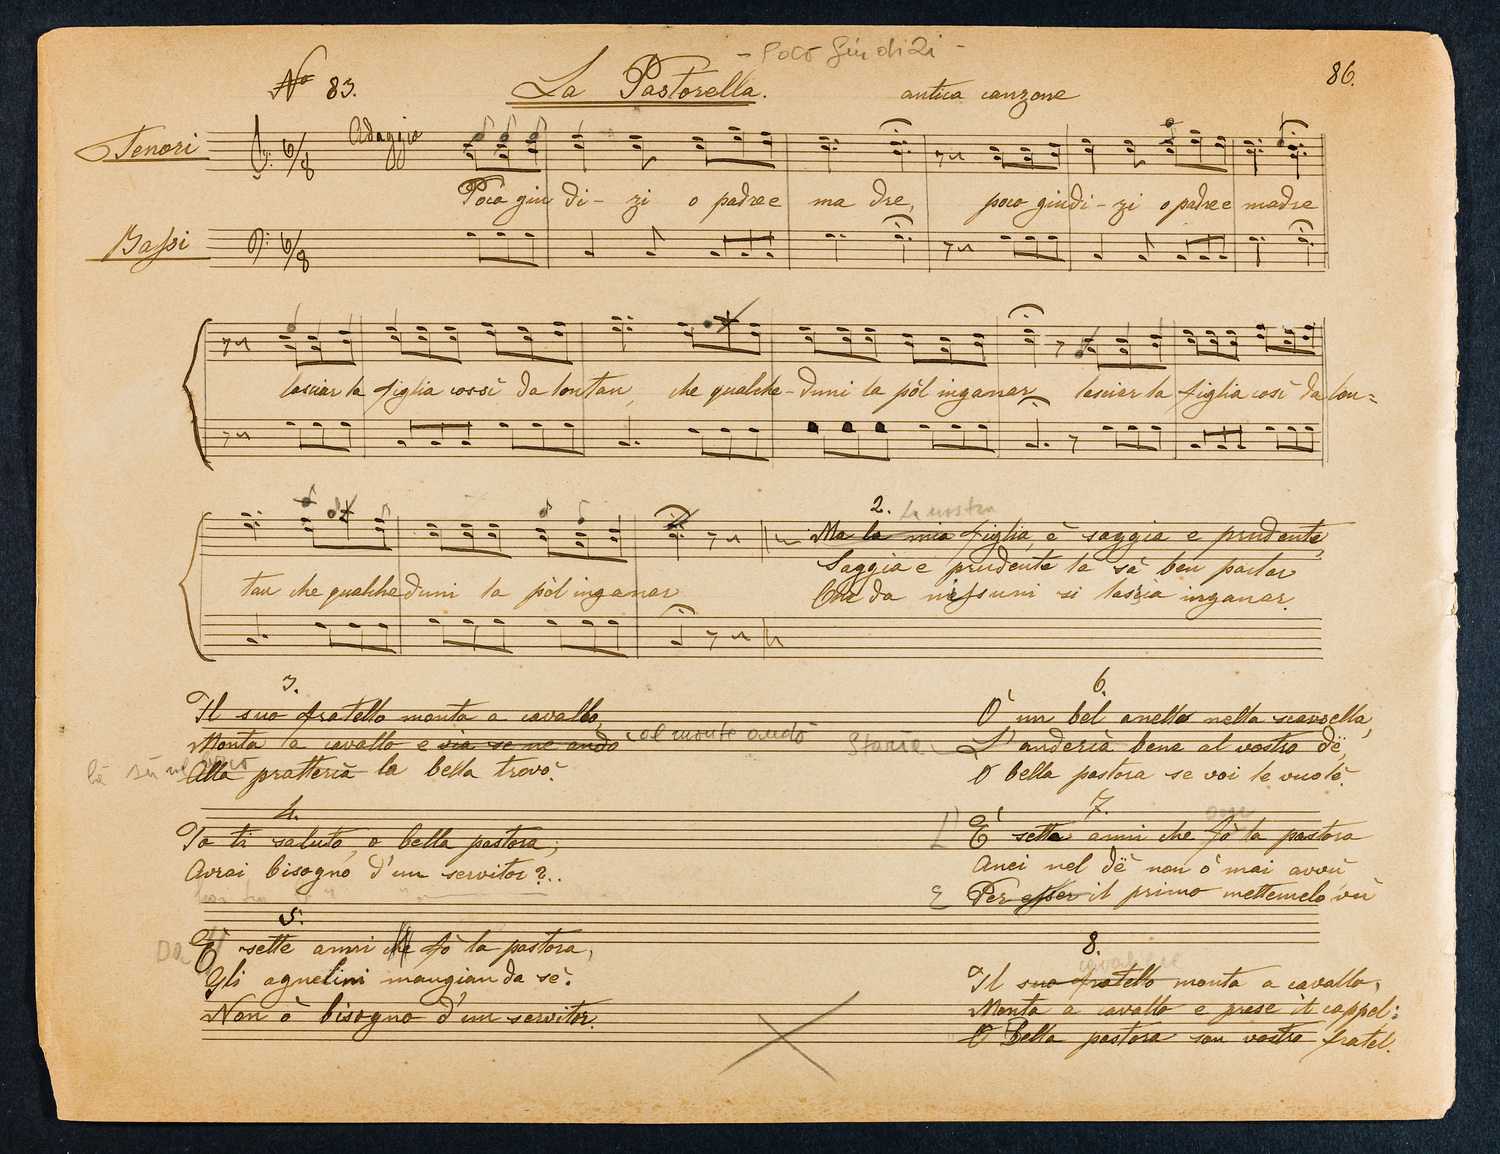 - Poco giudizi -
No 83.
La Pastorella.
antica canzone
86.
Tenori
Adagio
6/8
Poco giu di - zi o padre e ma dre, poco giudi - zi o padre e madre
Bassi
6/8
lasciar la figlia cossì da lontan, che qualche - duni la pòl inganar lasciar la figlia così da lon=
tan che qualche duni la pòl inganar
2.
La nostra
Ma la mia figlia, è saggia e prudente,
Saggia e prudente la sà ben parlar
Che da nissuni si lascia inganar.
3.
Il suo fratello monta a cavallo,
Monta a cavallo e via se ne andò al monte andò
là sù nel
Alla pratteria la bella trovò.
4.
Io ti saluto, o bella pastora,
Avrai bisogno d'un servitor?..
5.
Da
È sette anni che fò la pastora,
Gli agnelini mangian da sè.
Non ò bisogno d'un servitor.
6.
Ò un bel anello nella scarsella,
Staria
L'anderià bene al vostro dë,
O bella pastora se voi le vuolè.
7.
L'
È sette anni che fò la pastora
Anei nel dë non ò mai avvù
E
Per esser il primo mettemelo vù
8.
cavaliere
Il suo fratello monta a cavallo,
Monta a cavallo e prese il cappel:
O Bella pastora son vostro fratel.